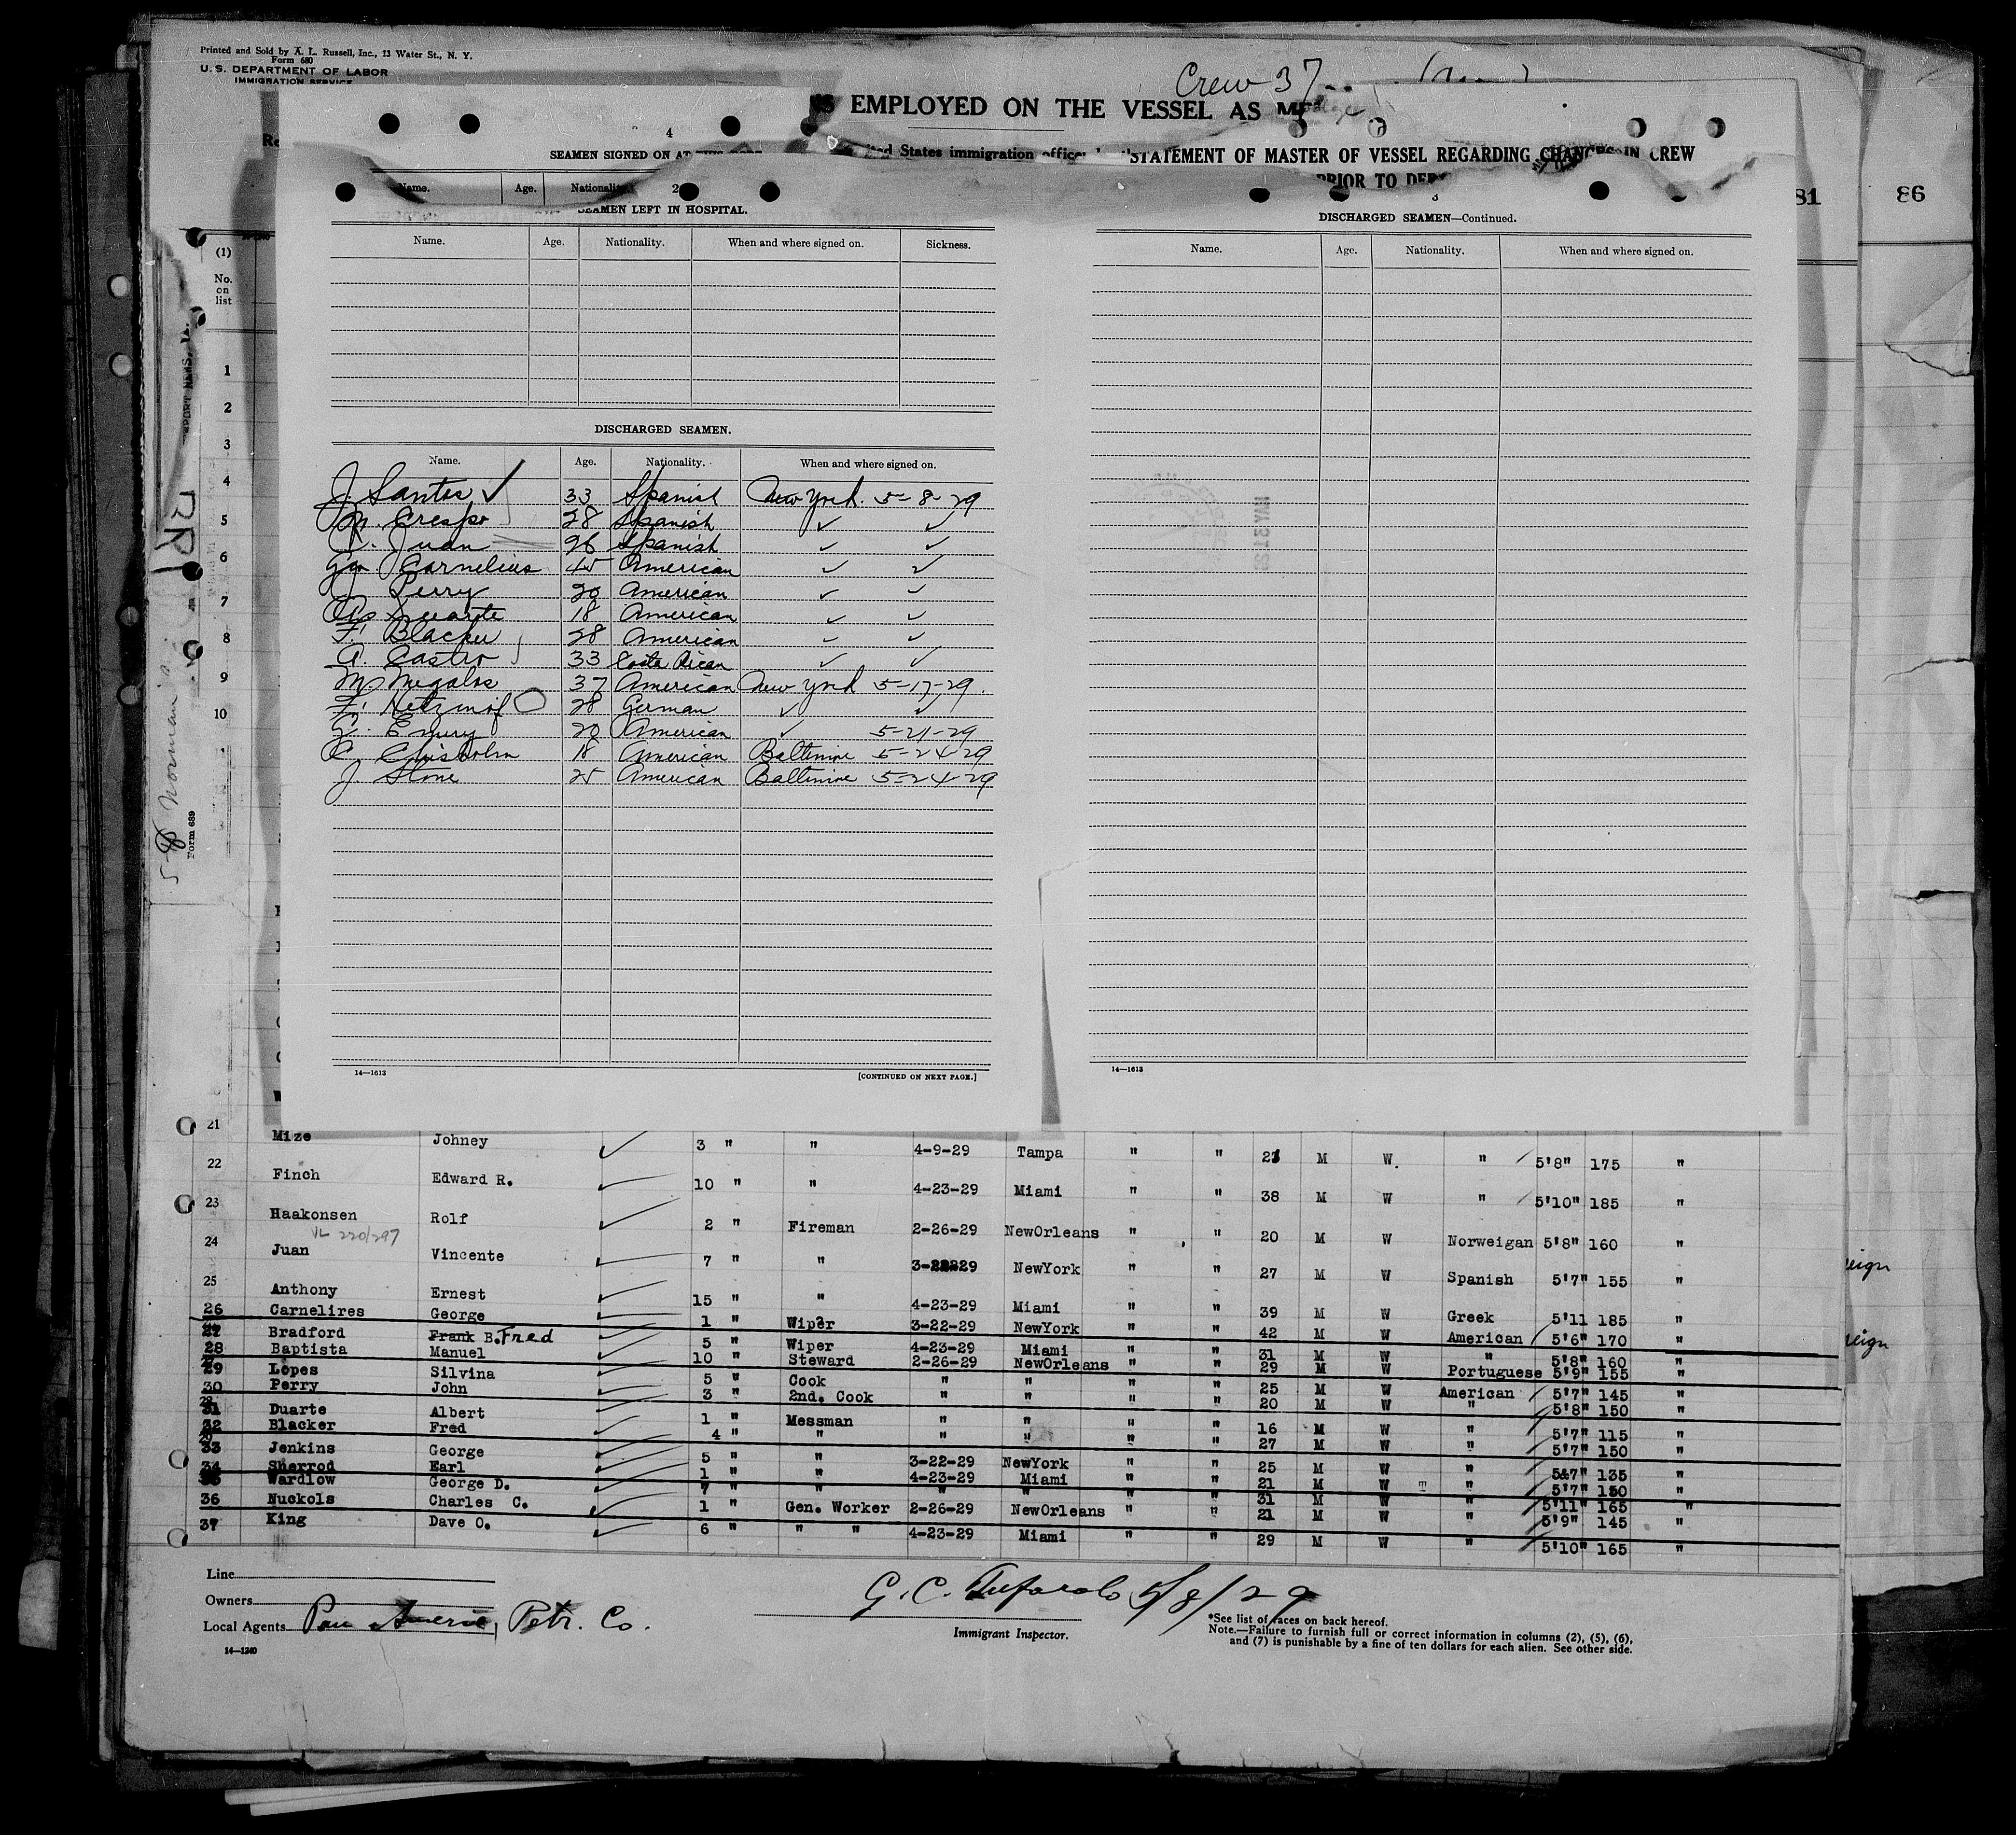 Printed and Sold by A. L. Russell, Inc., 13 Water St., N. Y.
Form 680
U. S. DEPARTMENT OF LABOR
IMMIGRATION SERVICE
Crew 37
EMPLOYED ON THE VESSEL AS
4
SEAMEN SIGNED ON AT
States immigration officer
STATEMENT OF MASTER OF VESSEL REGARDING CHANGES IN CREW
PRIOR TO
81
86
Name. Age. Nationality. 2
3
SEAMEN LEFT IN HOSPITAL.
Name. Age. Nationality. When and where signed on. Sickness.
DISCHARGED SEAMEN—Continued.
Name. Age. Nationality. When and where signed on.
(1)
No.
on
list
1
2
3
4
5
6
7
8
9
10
DISCHARGED SEAMEN.
Name. Age. Nationality. When and where signed on.
J. Santos ✓ 33 Spanish New York. 5-8-29
M. Crespo 28 Spanish ✓ ✓
Juan 26 Spanish ✓ ✓
Geo Carnelius 45 American ✓ ✓
J Perry 20 American ✓ ✓
A Duarte 18 American ✓ ✓
F. Blacker 28 American ✓ ✓
A. Castro 33 Costa Rican ✓ ✓
M Megalos 37 American New York 5-17-29.
F. 28 German ✓ ✓
Emery 20 American ✓ 5-21-29
C Chisholm 18 American Baltimore 5-24-29
J Stone 25 American Baltimore 5-24-29
Form 689
14—1613
[CONTINUED ON NEXT PAGE.]
14—1613
21 Mize Johney ✓ 3 " " 4-9-29 Tampa " " 21 M W. " 5'8" 175 "
22 Finch Edward R. ✓ 10 " " 4-23-29 Miami " " 38 M W " 5'10" 185 "
23 Haakonsen Rolf ✓ 2 " Fireman 2-26-29 NewOrleans " " 20 M W Norweigan 5'8" 160 "
VL 220/297
24 Juan Vincente ✓ 7 " " 3-22-29 NewYork " " 27 M W Spanish 5'7" 155 "
25 Anthony Ernest ✓ 15 " " 4-23-29 Miami " " 39 M W Greek 5'11 185 "
26 Carnelires George ✓ 1 " Wiper 3-22-29 NewYork " " 42 M W American 5'6" 170 "
27 Bradford Frank B. Fred ✓ 5 " Wiper 4-23-29 Miami " " 31 M W " 5'8" 160 "
28 Baptista Manuel ✓ 10 " Steward 2-26-29 NewOrleans " " 29 M W Portuguese 5'9" 155 "
29 Lopes Silvina ✓ 5 " Cook " " " " 25 M W American 5'7" 145 "
30 Perry John ✓ 3 " 2nd. Cook " " " " 20 M W " 5'8" 150 "
31 Duarte Albert ✓ 1 " Messman " " " " 16 M W " 5'7" 115 "
32 Blacker Fred ✓ 4 " " " " " " 27 M W " 5'7" 150 "
33 Jenkins George ✓ 5 " " 3-22-29 NewYork " " 25 M W " 5'7" 135 "
34 Sherrod Earl ✓ 1 " " 4-23-29 Miami " " 21 M W " 5'7" 150 "
35 Wardlow George D. ✓ 7 " " " " " " 31 M W " 5'11" 165 "
36 Nuckols Charles C. ✓ 1 " Gen. Worker 2-26-29 NewOrleans " " 21 M W " 5'9" 145 "
37 King Dave O. ✓ 6 " " " 4-23-29 Miami " " 29 M W " 5'10" 165 "
Line
Owners
Local Agents Pan Petr. Co.
G. C. 5/8/29
Immigrant Inspector.
*See list of races on back hereof.
Note.—Failure to furnish full or correct information in columns (2), (5), (6),
and (7) is punishable by a fine of ten dollars for each alien. See other side.
14—1240